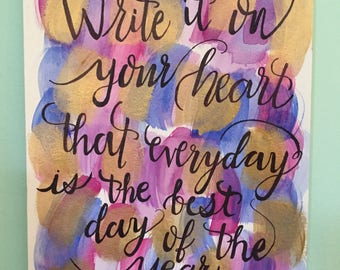 Write it on
your heart
that everyday
is the best
day of the
year